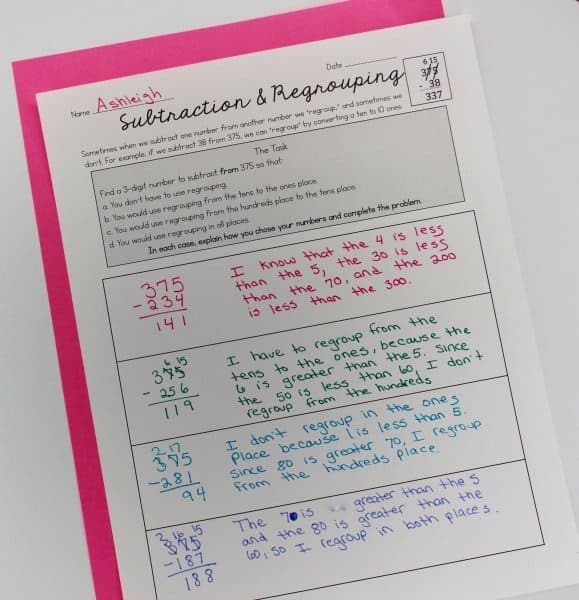 Name Ashleigh
Date
Subtraction & Regrouping
6 15
375
- 38
337
Sometimes when we subtract one number from another number we "regroup," and sometimes we
don't. For example, if we subtract 38 from 375, we can "regroup" by converting a ten to 10 ones.
The Task
Find a 3-digit number to subtract from 375 so that:
a. You don't have to use regrouping.
b. You would use regrouping from the tens to the ones place.
c. You would use regrouping from the hundreds place to the tens place.
d. You would use regrouping in all places.
In each case, explain how you chose your numbers and complete the problem.
375
- 234
141
I know that the 4 is less
than the 5, the 30 is less
than the 70, and the 200
is less than the 300.
6 15
375
- 256
119
I have to regroup from the
tens to the ones, because the
6 is greater than the 5. Since
the 50 is less than 60, I don't
regroup from the hundreds
2 17
375
- 281
94
I don't regroup in the ones
place because 1 is less than 5.
Since 80 is greater 70, I regroup
from the hundreds place.
2 16 15
375
- 187
188
The 7 is greater than the 5
and the 80 is greater than the
60, so I regroup in both places.